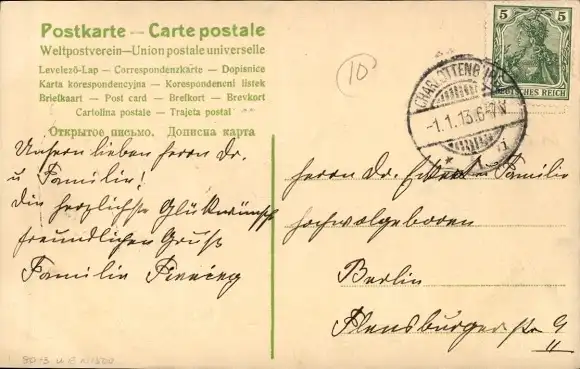 Postkarte — Carte postale
Weltpostverein—Union postale universelle
Levelező-Lap — Correspondenzkarte — Dopisnice
Karta korespondencyjna — Korespondencni listek
Briefkaart — Post card — Brefkort — Brevkort
Cartolina postale — Trajeta postal
Открытое письмо. Дописна карта
Unsern lieben Herrn Dr.
u Familie!
Die herzlichste Glückwünsche
freundlichen Gruß
Familie
10
CHARLOTTENBURG
-1.1.13.6-7N
* 1
5
5
DEUTSCHES REICH
Herrn Dr. Familie
Hochwolgeboren
Berlin
Flensburger str 9